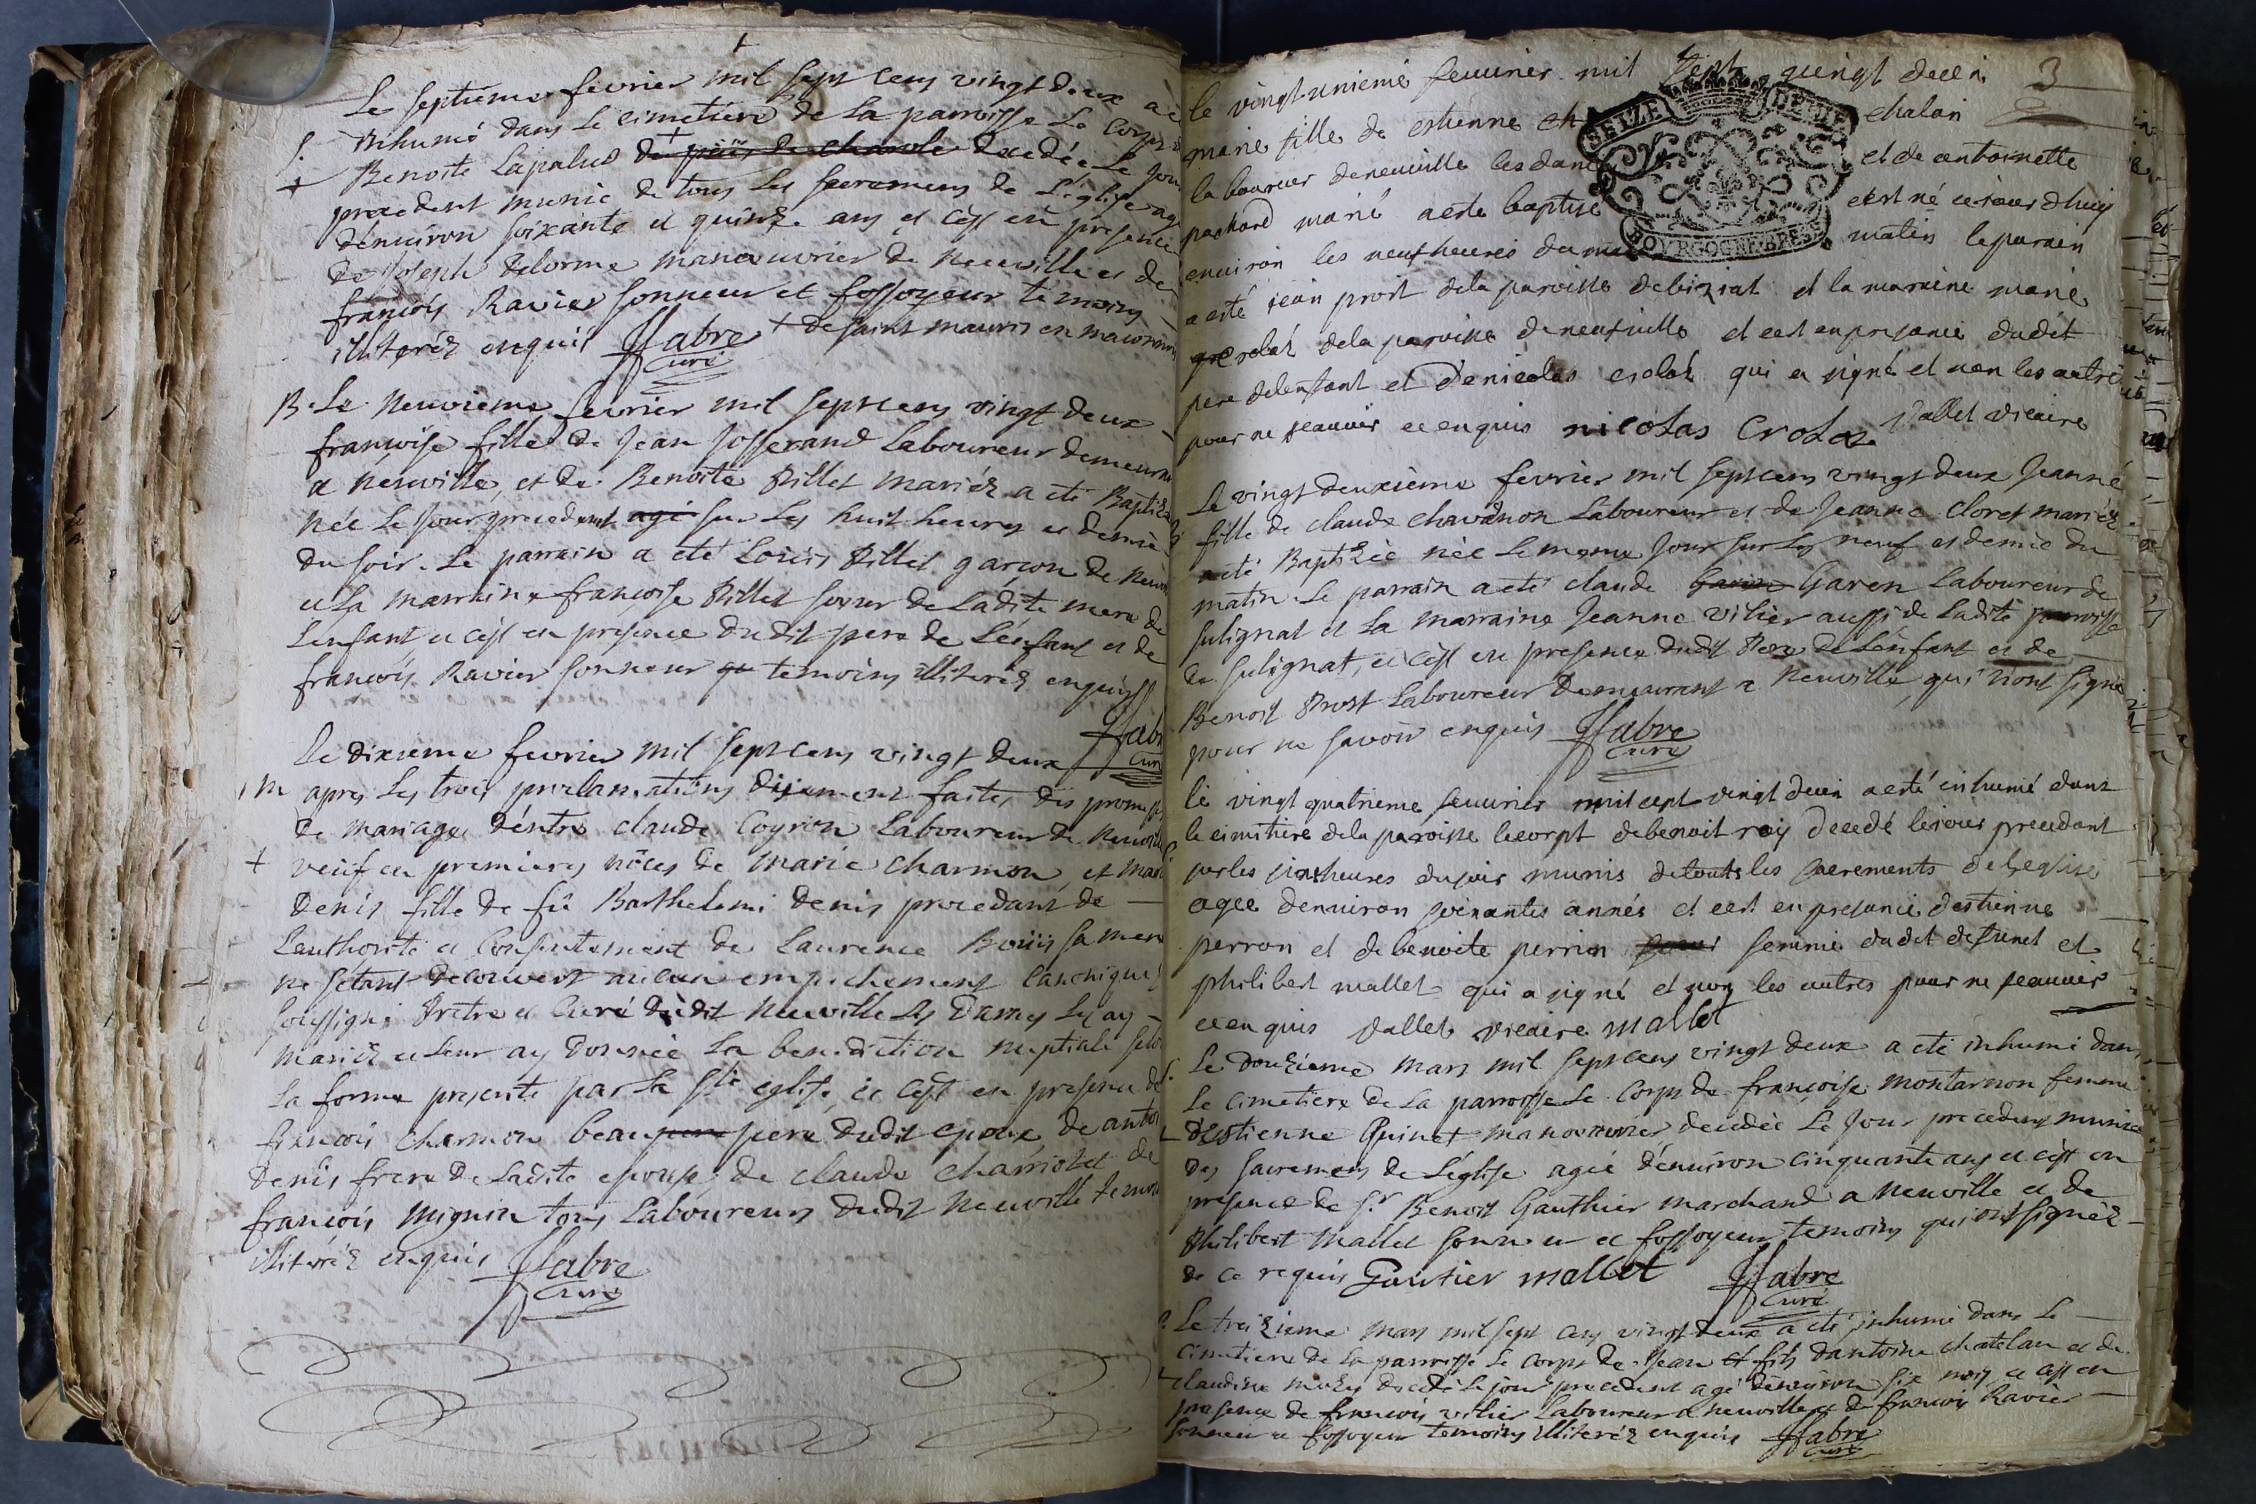 Le septieme fevrier mil sept cens vingt deux a été
S. Inhumé dans le cimetiere de la parroisse Le Corps de
+ Benoite Lapalud de + décédée Le jour
precedent munie de tous les sacremens de L'église agée
d'environ soixante et quinze ans et c'est en presence
de Joseph Delorme manouvrier de Neuville et de
françois Ravier sonneur et fossoyeur temoins
illiterés enquis ffabre Curé + de saint mauris en maconnois
B. Le Neuvieme fevrier mil sept cens vingt deux
francoise fille de Jean Josserand Laboureur demeurant
a Neuville, et de Benoite Pillet mariés a été Baptizée
née Le Jour precedent agé sur Les huit heures et demie
du soir. Le parrain a eté Louis Pillet garçon de Neuville
et La marraine francoise Pillet soeur de Ladite mere de
Lenfant, et c'est en presence dudit pere de L'enfant et de
francois Ravier sonneur temoins illiterés enquis
ffabre Curé
Le dixieme fevrier mil sept cens vingt deux
M apres Les trois proclamations duement faites des promesses
de mariage d'entre claude Coyron Laboureur de Neuville
+ veuf en premieres nôces de Marie charmon, et marie
Denis fille de fû Barthelemi Denis procedant de
Lauthorité et Consentement de Laurence Bouis sa mere
ne setant decouvert aucun empechement Canonique Je
soussigné Prêtre et Curé dudit Neuville Les Dames Les ay
mariés et Leur ay donnée La benediction nuptiale selon
La forme prescrite par La Ste église, et c'est en presence de
francois charmon beau pere dudit epoux, de antoine
denis frere de Ladite epouse, de claude charriolet de
francois Mignin tous Laboureurs dudit Neuville temoins
illiterés enquis ffabre
Curé
3
le vingt unieme fevurier mil sept vingt deux
marie fille de estienne chalan
laboureur deneuville les dames et de antoinette
pachord marié a esté baptisé et est né ce iour dhuy
enuiron les neuf heures du matin le parain
a esté jean prost dela paroisse debiziat et la maraine marie
crolat dela paroisse deneufville et cest en presance dudit
pere delenfant et de nicolas crolat qui a signé et non les autres
pour ne scauoir ce enquis nicolas Crolaz Vallet vicaire
Le vingt deuxième fevrier mil sept cens vingt deux Jeanne
fille de claude chavanon Laboureur et de Jeanne Cloret mariés
a été Baptizée née Le meme jour sur Les neuf et demie du
matin. Le parrain a eté claude Garen Laboureur de
sulignat et La marraine Jeanne vilier aussi de Ladite parroisse
de sulignat, et c'est en presence dudit Pere de L'enfant et de
Benoit Prost Laboureur Demeurant a Neuville, qui n'ont signé
pour ne savoir enquis ffabre
Curé
le vingt quatrieme fevurier mil cept vingt deux a esté inhumé dans
le cimitiere dela paroisse lecorpt debenoit roy decedé leiour precedant
sur les six heures dusoir munis detouts les sacrements de leglise
agee denuiron soixantes annés et cest enpresance destienne
perron et de benoite perrion femme dudit defunct et
philibert mallet qui a signé et non les autres pour ne scauoir
ce en quis Vallet vicaire mallet
S. Le douzieme mars mil sept cens vingt deux a eté inhumé dans
Le cimetiere de La parroisse Le Corps de francoise montarnon femme
d'Estienne Guinet manouvrier, decedée Le jour precedent munie
des sacremens de L'église agée d'environ cinquante ans et c'est en
presence de Sr Benoit Gauthier marchand a Neuville et de
Philibert Mallet sonneur et fossoyeur temoins qui ont signés
de ce requis Gautier mallet ffabre
Curé
S. Le treizieme mars mil sept cens vingt deux a eté inhumé dans Le
cimetiere de La parroisse Le Corps de Jean fils d'antoine chatelan et de
claudine decedé Le jour precedent agé d'environ six mois, et c'est en
presence de francois vilier Laboureur a neuville et de francois Ravier
sonneur et fossoyeur temoins illiterés enquis ffabre
Curé
SEIZE DENIE
BOURGOGNE BRESSE